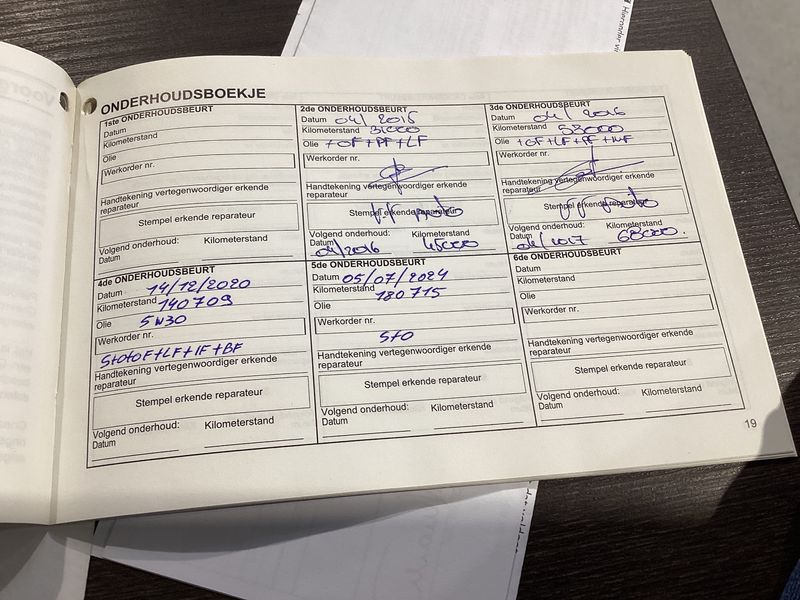 ONDERHOUDSBOEKJE
1ste ONDERHOUDSBEURT
Datum
Kilometerstand
Olie
Werkorder nr.
Handtekening vertegenwoordiger erkende
reparateur
Stempel erkende reparateur
Volgend onderhoud: Kilometerstand
Datum
2de ONDERHOUDSBEURT
Datum 04/2015
Kilometerstand 31000
Olie +OF+PF+LF
Werkorder nr.
Handtekening vertegenwoordiger erkende
reparateur
Stempel erkende reparateur
Volgend onderhoud: Kilometerstand
Datum 04/2016 45000
3de ONDERHOUDSBEURT
Datum 04/2016
Kilometerstand 58000
Olie +OF+LF+PF+
Werkorder nr.
Handtekening vertegenwoordiger erkende
reparateur
Stempel erkende reparateur
Volgend onderhoud: Kilometerstand
Datum 04/2017 68000.
4de ONDERHOUDSBEURT
Datum 14/12/2020
Kilometerstand 140709
Olie 5W30
Werkorder nr.
S+O+OF+LF+IF+BF
Handtekening vertegenwoordiger erkende
reparateur
Stempel erkende reparateur
Volgend onderhoud: Kilometerstand
Datum
5de ONDERHOUDSBEURT
Datum 05/07/2024
Kilometerstand 180715
Olie
Werkorder nr.
S+O
Handtekening vertegenwoordiger erkende
reparateur
Stempel erkende reparateur
Volgend onderhoud: Kilometerstand
Datum
6de ONDERHOUDSBEURT
Datum
Kilometerstand
Olie
Werkorder nr.
Handtekening vertegenwoordiger erkende
reparateur
Stempel erkende reparateur
Volgend onderhoud: Kilometerstand
Datum
19
Hieronder